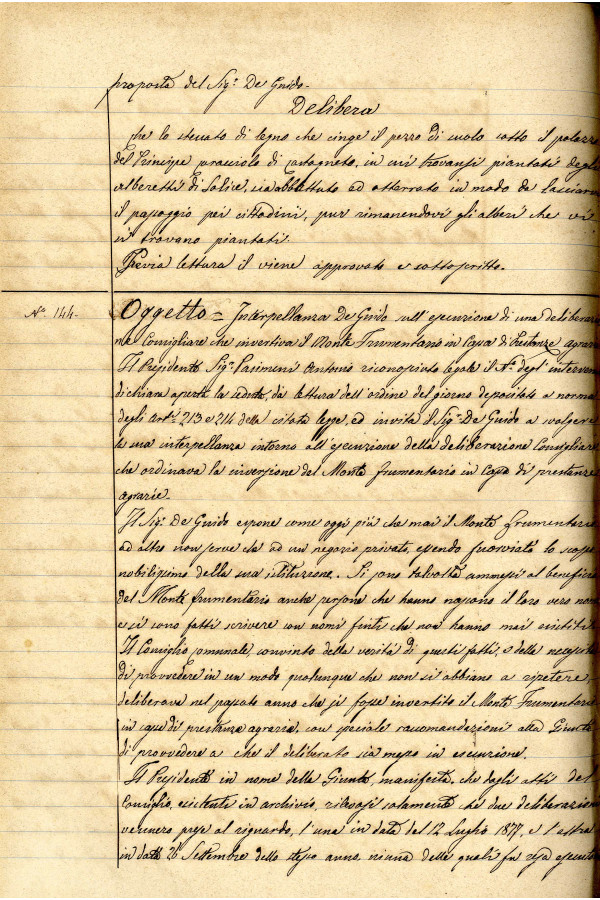 proposta del Sig.r De Guido.
Delibera
che lo steccato di legno che cinge il pezzo di suolo sotto il palazzo
del Principe di in cui trovansi piantati degli
alberetti di Salice, sia abbattuto ed atterrato in modo da lasciare
il passaggio pei cittadini, pur rimanendovi gli alberi che vi
si trovano piantati.
Previa lettura il viene approvato e sottoscritto.
N.o 144.
Oggetto = Interpellanza De Guido sull'esecuzione di una delibera
Consigliare che invertiva il Monte Frumentario in Cassa di Prestanze agrarie
Il Presidente Sig.r Antonio riconosciuto legale il N.o degl'interven
dichiara aperta la seduta, dà lettura dell'ordine del giorno depositato a norma
degli Art.i 213 e 214 della citata legge, ed invita il Sig.r De Guido a svolgere
la sua interpellanza intorno all'esecuzione della deliberazione Consigliare
che ordinava la inversione del Monte frumentario in Cassa di prestanze
agrarie.
Il Sig.r De Guido espone come oggi più che mai il Monte Frumentario
ad altro non serve che ad un negozio privato, essendo fuorviato lo scopo
nobilissimo della sua istituzione. Si sono talvolta ammessi al beneficio
del Monte frumentario anche persone che hanno nascoso il loro vero nome
e si sono fatti scrivere con nomi finti che non hanno mai esistiti.
Il Consiglio comunale convinto della verità di questi fatti, e della necessità
di provvedere in un modo qualunque che non si abbiano a ripetere,
deliberava nel passato anno che si fosse invertito il Monte Frumentario
in casse di prestanze agrarie, con speciale raccomandazioni alla Giunta
di provvedere a che il deliberato sia messo in esecuzione.
Il Presidente in nome della Giunta, manifesta, che dagli atti del
Consiglio, esistenti in archivio, rilevasi solamente che due deliberazioni
vennero prese al riguardo, l'una in data del 12 Luglio 1877, e l'altra
in data 26 Settembre dello stesso anno, niuna delle quali fu resa esecutiva